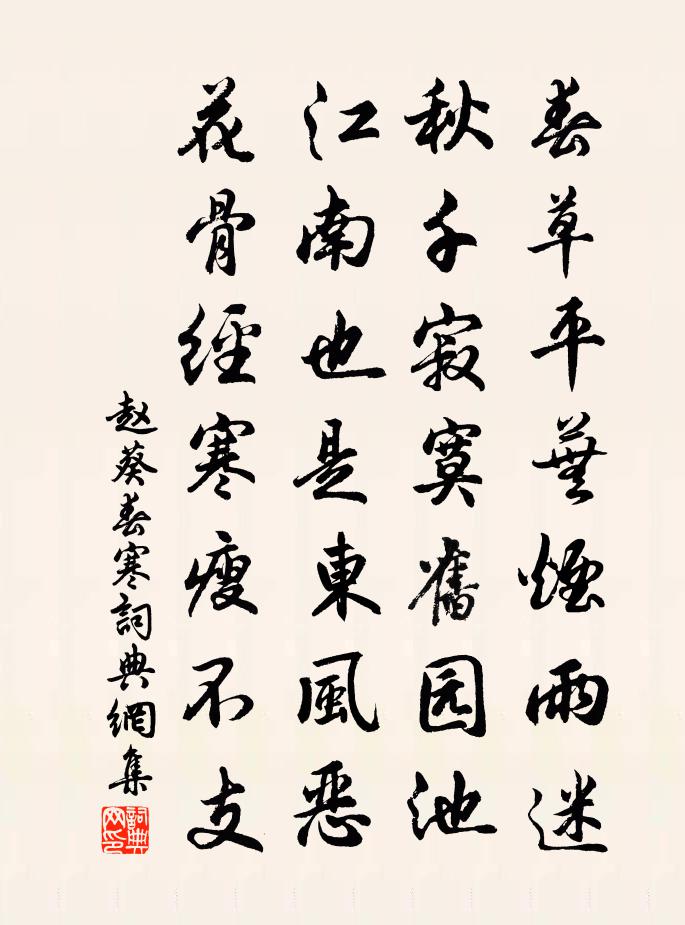 春草平蕪煙雨迷
秋千寂寞舊园池
江南也是東風惡
花骨經寒瘦不支
赵葵春寒詞典網集
詞典
网印